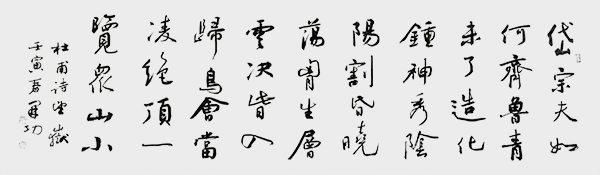 岱宗夫如
何齊魯青
未了造化
鍾神秀陰
陽割昏曉
蕩胷生層
雲決眥入
歸鳥會當
凌絶頂一
覽衆山小
杜甫詩望嶽
壬寅春